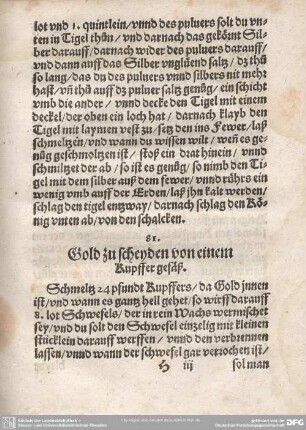 lot vnd 1. quintlein/ vnnd des puluers solt du vn-
ten in Tigel thůn/ vnd darnach das gekörnt Sil-
ber darauff/ darnach wider des puluers darauff/
vnd dann auff das Silber vnglüend saltz/ dz thů
so lang/ das du des puluers vnnd silbers nit mehr
hast/ vñ thů auff dz puluer saltz genůg/ ein schicht
vmb die ander/ vnnd decke den Tigel mit einem
deckel/ der oben ein loch hat/ darnach klayb den
Tigel mit laymen vest zu/ setz den ins Fewer/ laß
schmeltzen/ vnd wann du wissen wilt/ weñ es ge-
nůg geschmoltzen ist/ stoß ein drat hinein/ vnnd
schmiltzet der ab/ so ist es genůg/ so nimb den Ti-
gel mit dem silber auß dem fewer/ vnnd rührs ein
wenig vmb auff der Erden/ laß jhn kalt werden/
schlag den tigel entzway/ darnach schlag den Kö-
nig vnten ab/ von den schalcken.
81.
Gold zu scheyden von einem
Kupffer gefäß.
Schmeltz 24 pfundt Kupffers/ da Gold jnnen
ist/ vnd wann es gantz hell gehet/ so wirff darauff
8. lot Schwefels/ der in rein Wachs vermischet
sey/ vnd du solt den Schwefel eintzelig mit kleinen
stücklein darauff werffen/ vnnd den verbrennen
lassen/ vnnd wann der schwefel gar verrochen ist/
H iij sol man